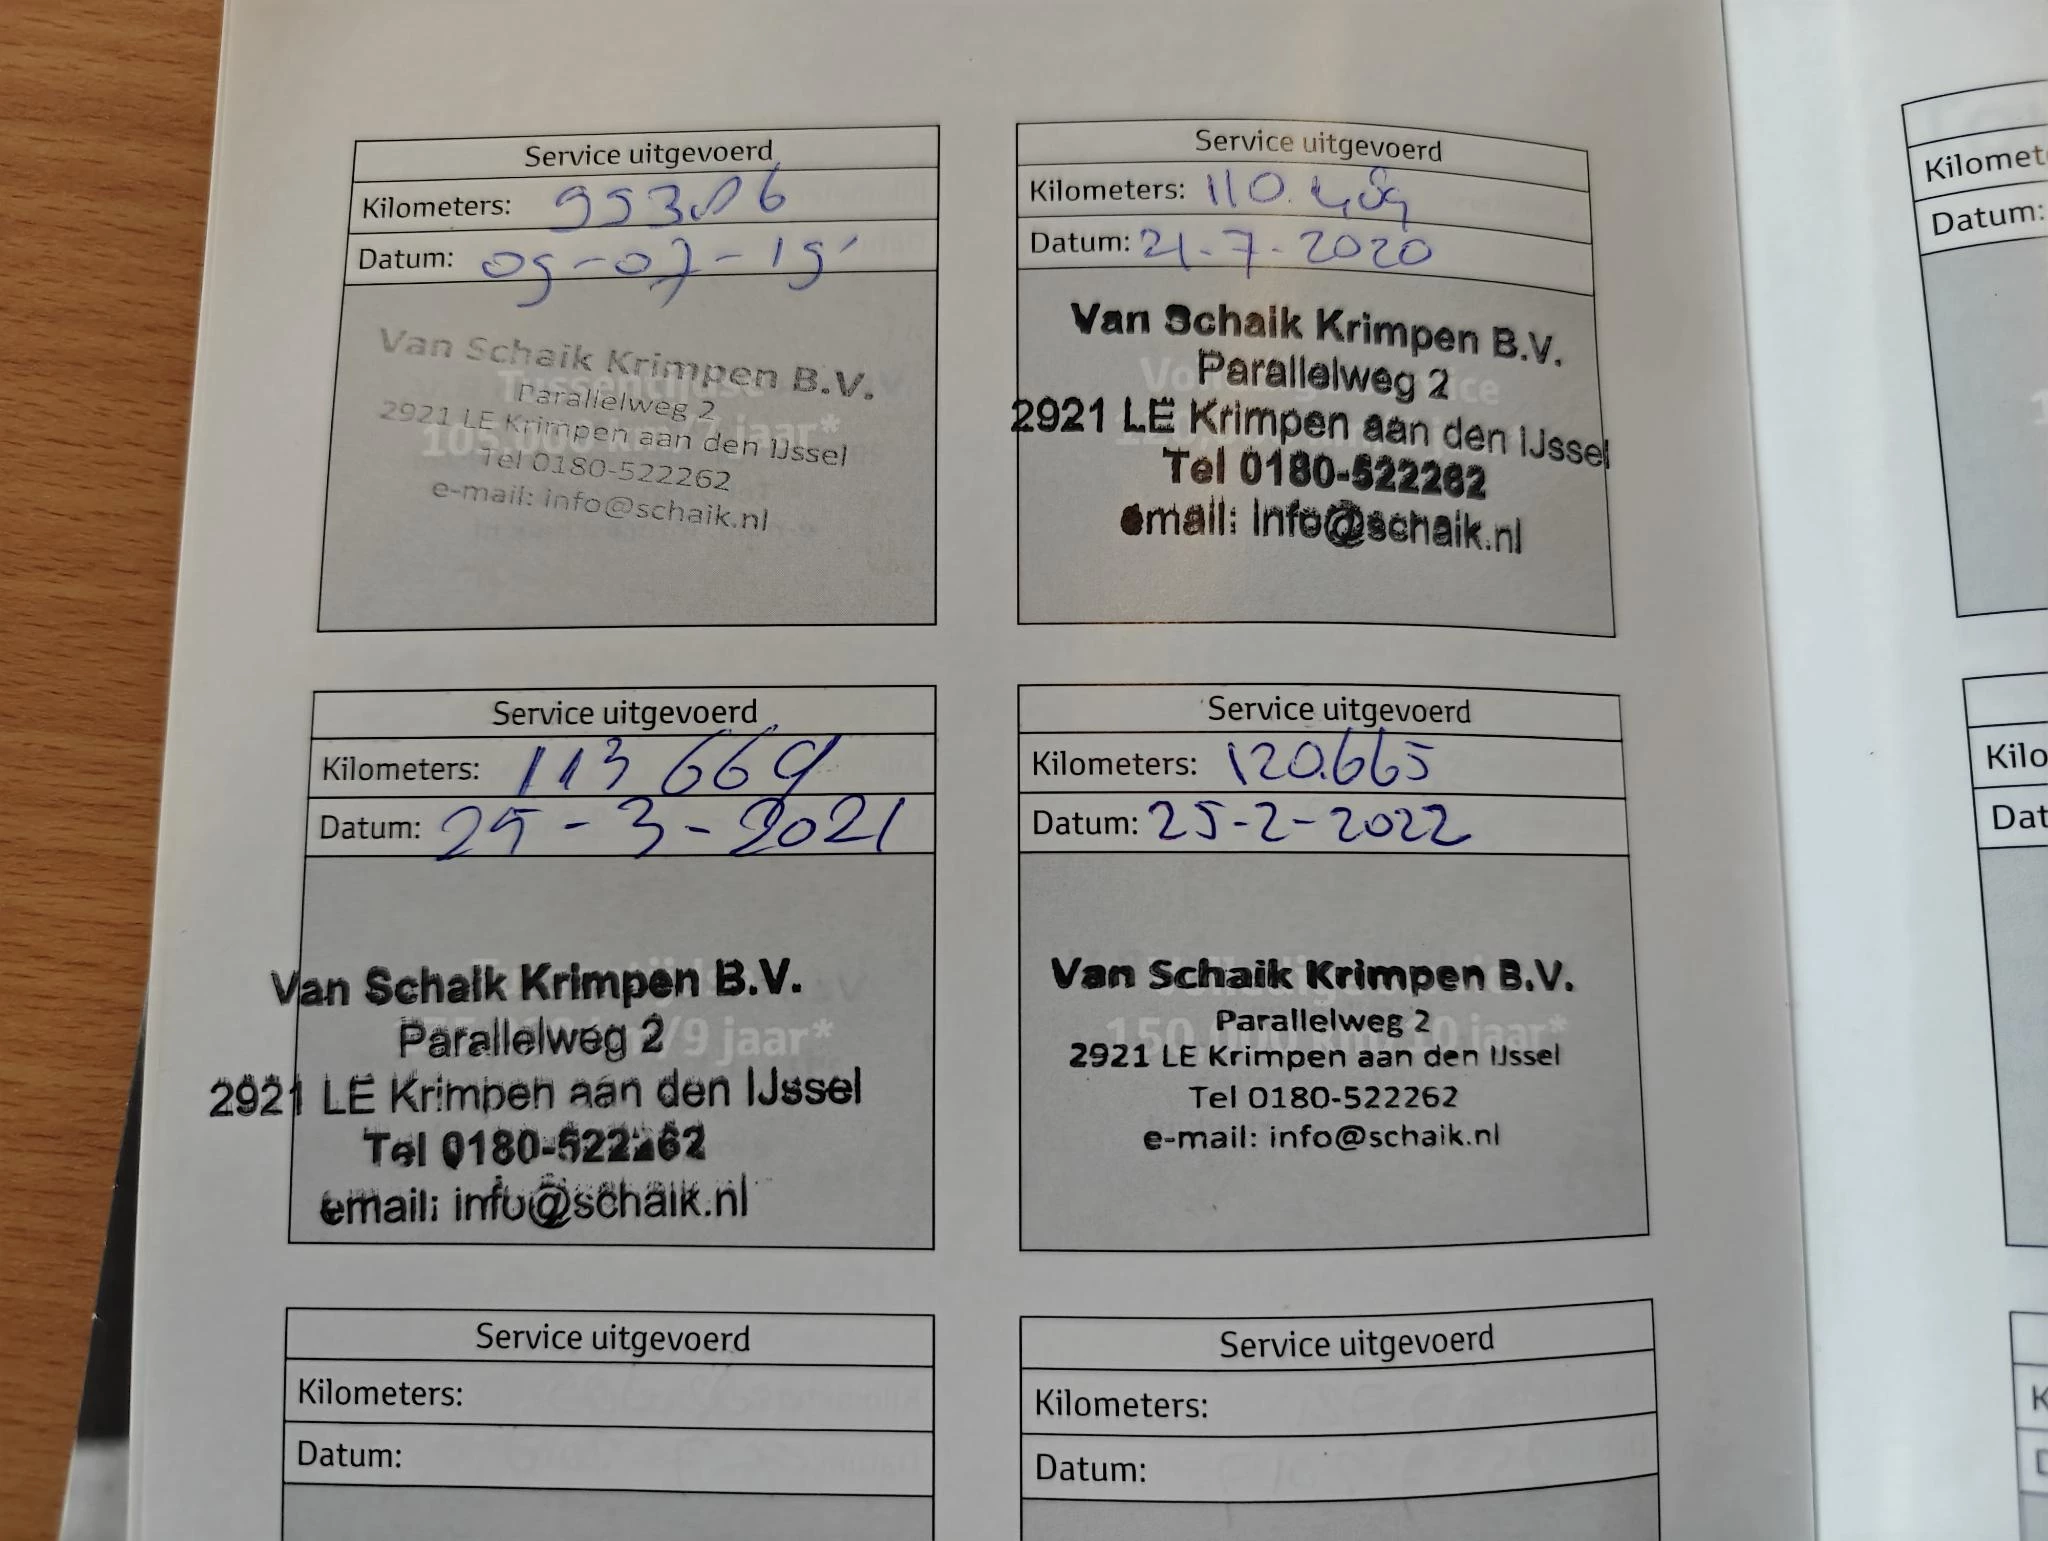 Service uitgevoerd
Kilometers: 99306
Datum: 09-07-19
Van Schaik Krimpen B.V.
Parallelweg 2
105.000 km/7 jaar*
2921 LE Krimpen aan den IJssel
Tel 0180-522262
e-mail: info@schaik.nl
Service uitgevoerd
Kilometers: 110.489
Datum: 21-7-2020
Van Schaik Krimpen B.V.
Parallelweg 2
2921 LE Krimpen aan den IJssel
Tel 0180-522262
email: info@schaik.nl
Service uitgevoerd
Kilometers: 113 669
Datum: 25-3-2021
Van Schaik Krimpen B.V.
Parallelweg 2
/9 jaar*
2921 LE Krimpen aan den IJssel
Tel 0180-522262
email: info@schaik.nl
Service uitgevoerd
Kilometers: 120.665
Datum: 25-2-2022
Van Schaik Krimpen B.V.
Parallelweg 2
150.000 km/10 jaar*
2921 LE Krimpen aan den IJssel
Tel 0180-522262
e-mail: info@schaik.nl
Service uitgevoerd
Kilometers:
Datum:
Service uitgevoerd
Kilometers:
Datum:
Kilomet
Datum:
Kilo
Dat
K